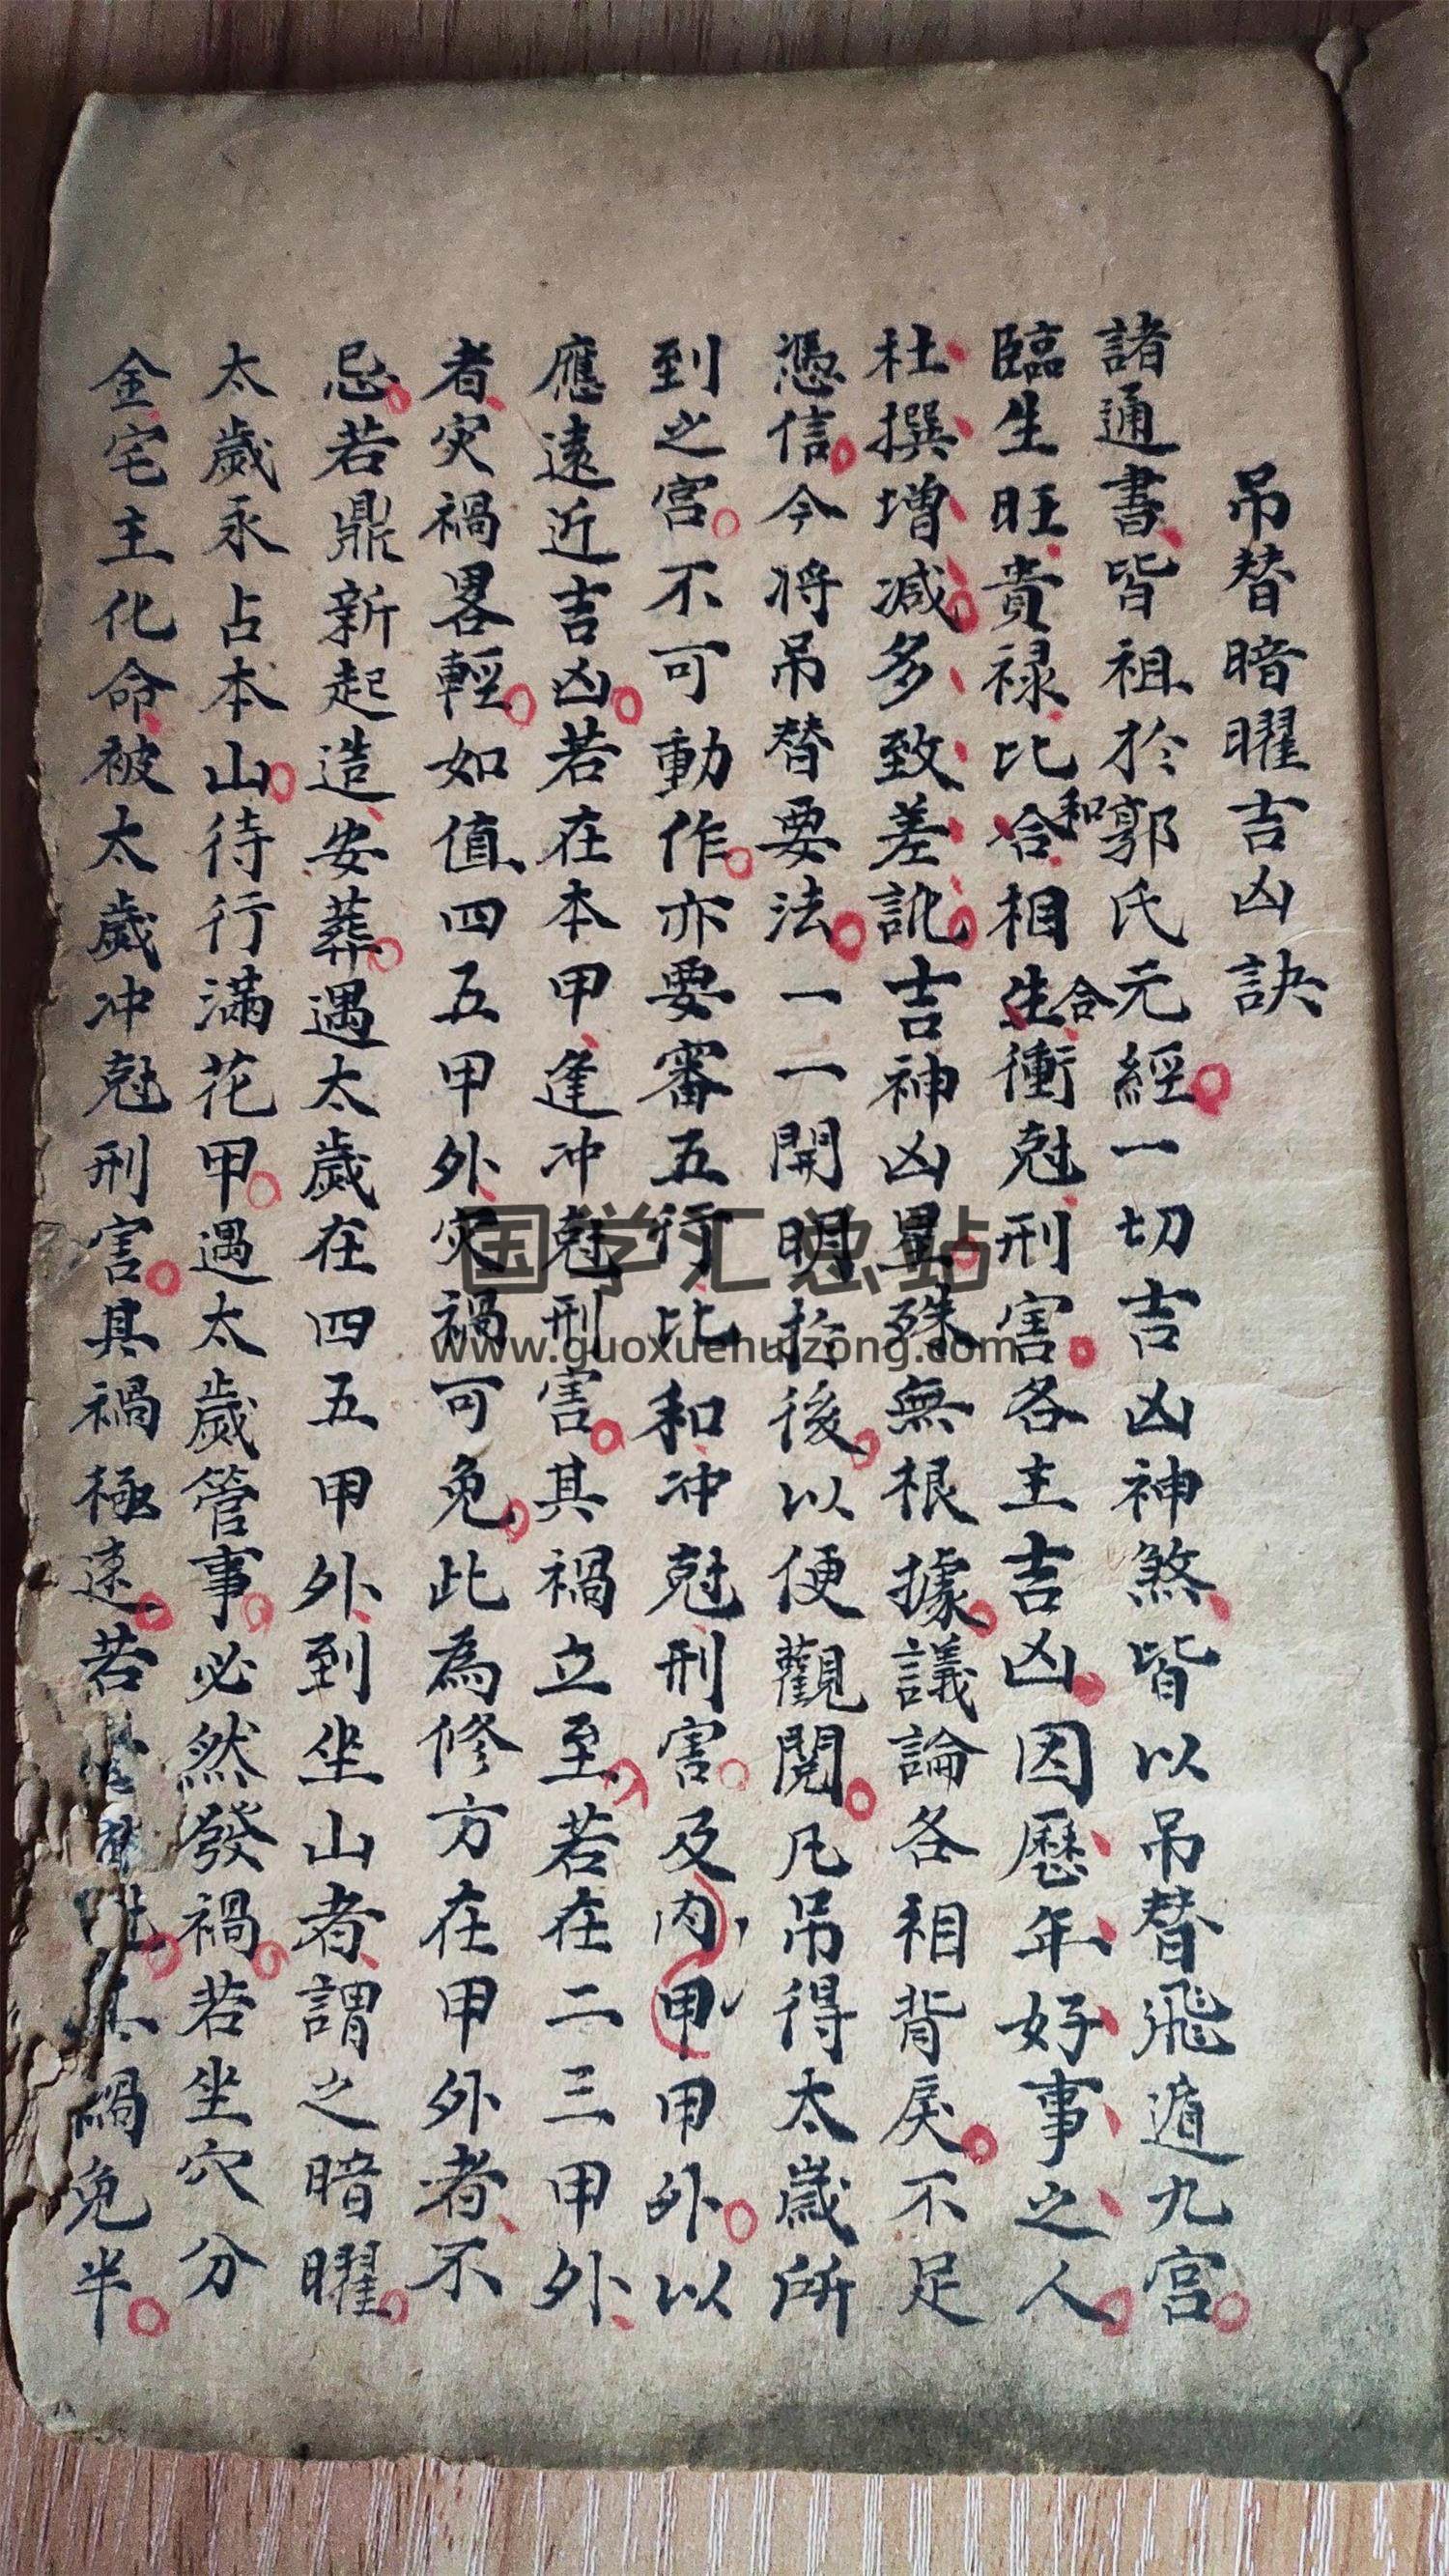 吊替暗曜吉凶訣
諸通書皆祖於郭氏元經一切吉凶神煞皆以吊替飛遁九宫
臨生旺貴禄比合和相生合衝尅刑害各主吉凶因歷年好事之人
杜撰增减多致差訛吉神凶星殊無根據議論各相背戾不足
憑信今将吊替要法一一開明於後以便觀閱凡吊得太歲所
到之宫不可動作亦要審五行比和冲尅刑害及内甲甲外以
應遠近吉凶若在本甲逢冲尅刑害其禍立至若在二三甲外
者灾禍畧輕如值四五甲外灾禍可免此為修方在甲外者不
忌若鼎新起造安葬遇太歲在四五甲外到坐山者謂之暗曜
太歲永占本山待行滿花甲遇太歲管事必然發禍若坐穴分
金宅主化命被太歲冲尅刑害其禍極速若其禍免半
国学汇总站
www.guoxuehuizong.com